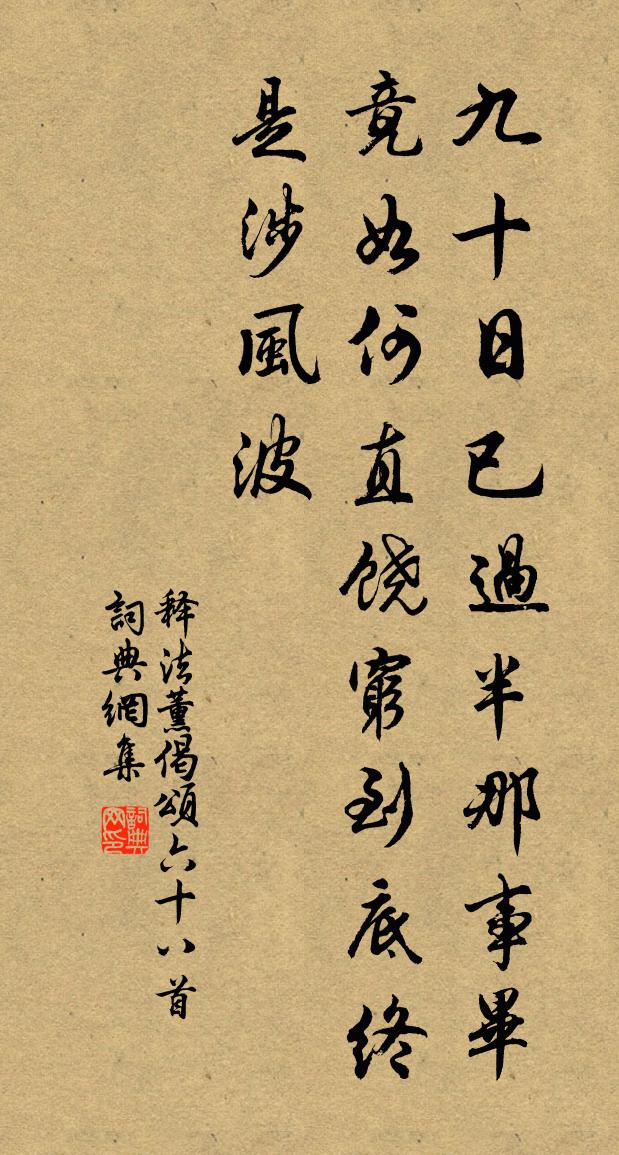 九十日已過半那事畢
竟如何直饶窮到底終
是涉風波
释法薰偈頌六十八首
詞典網集
詞典网印